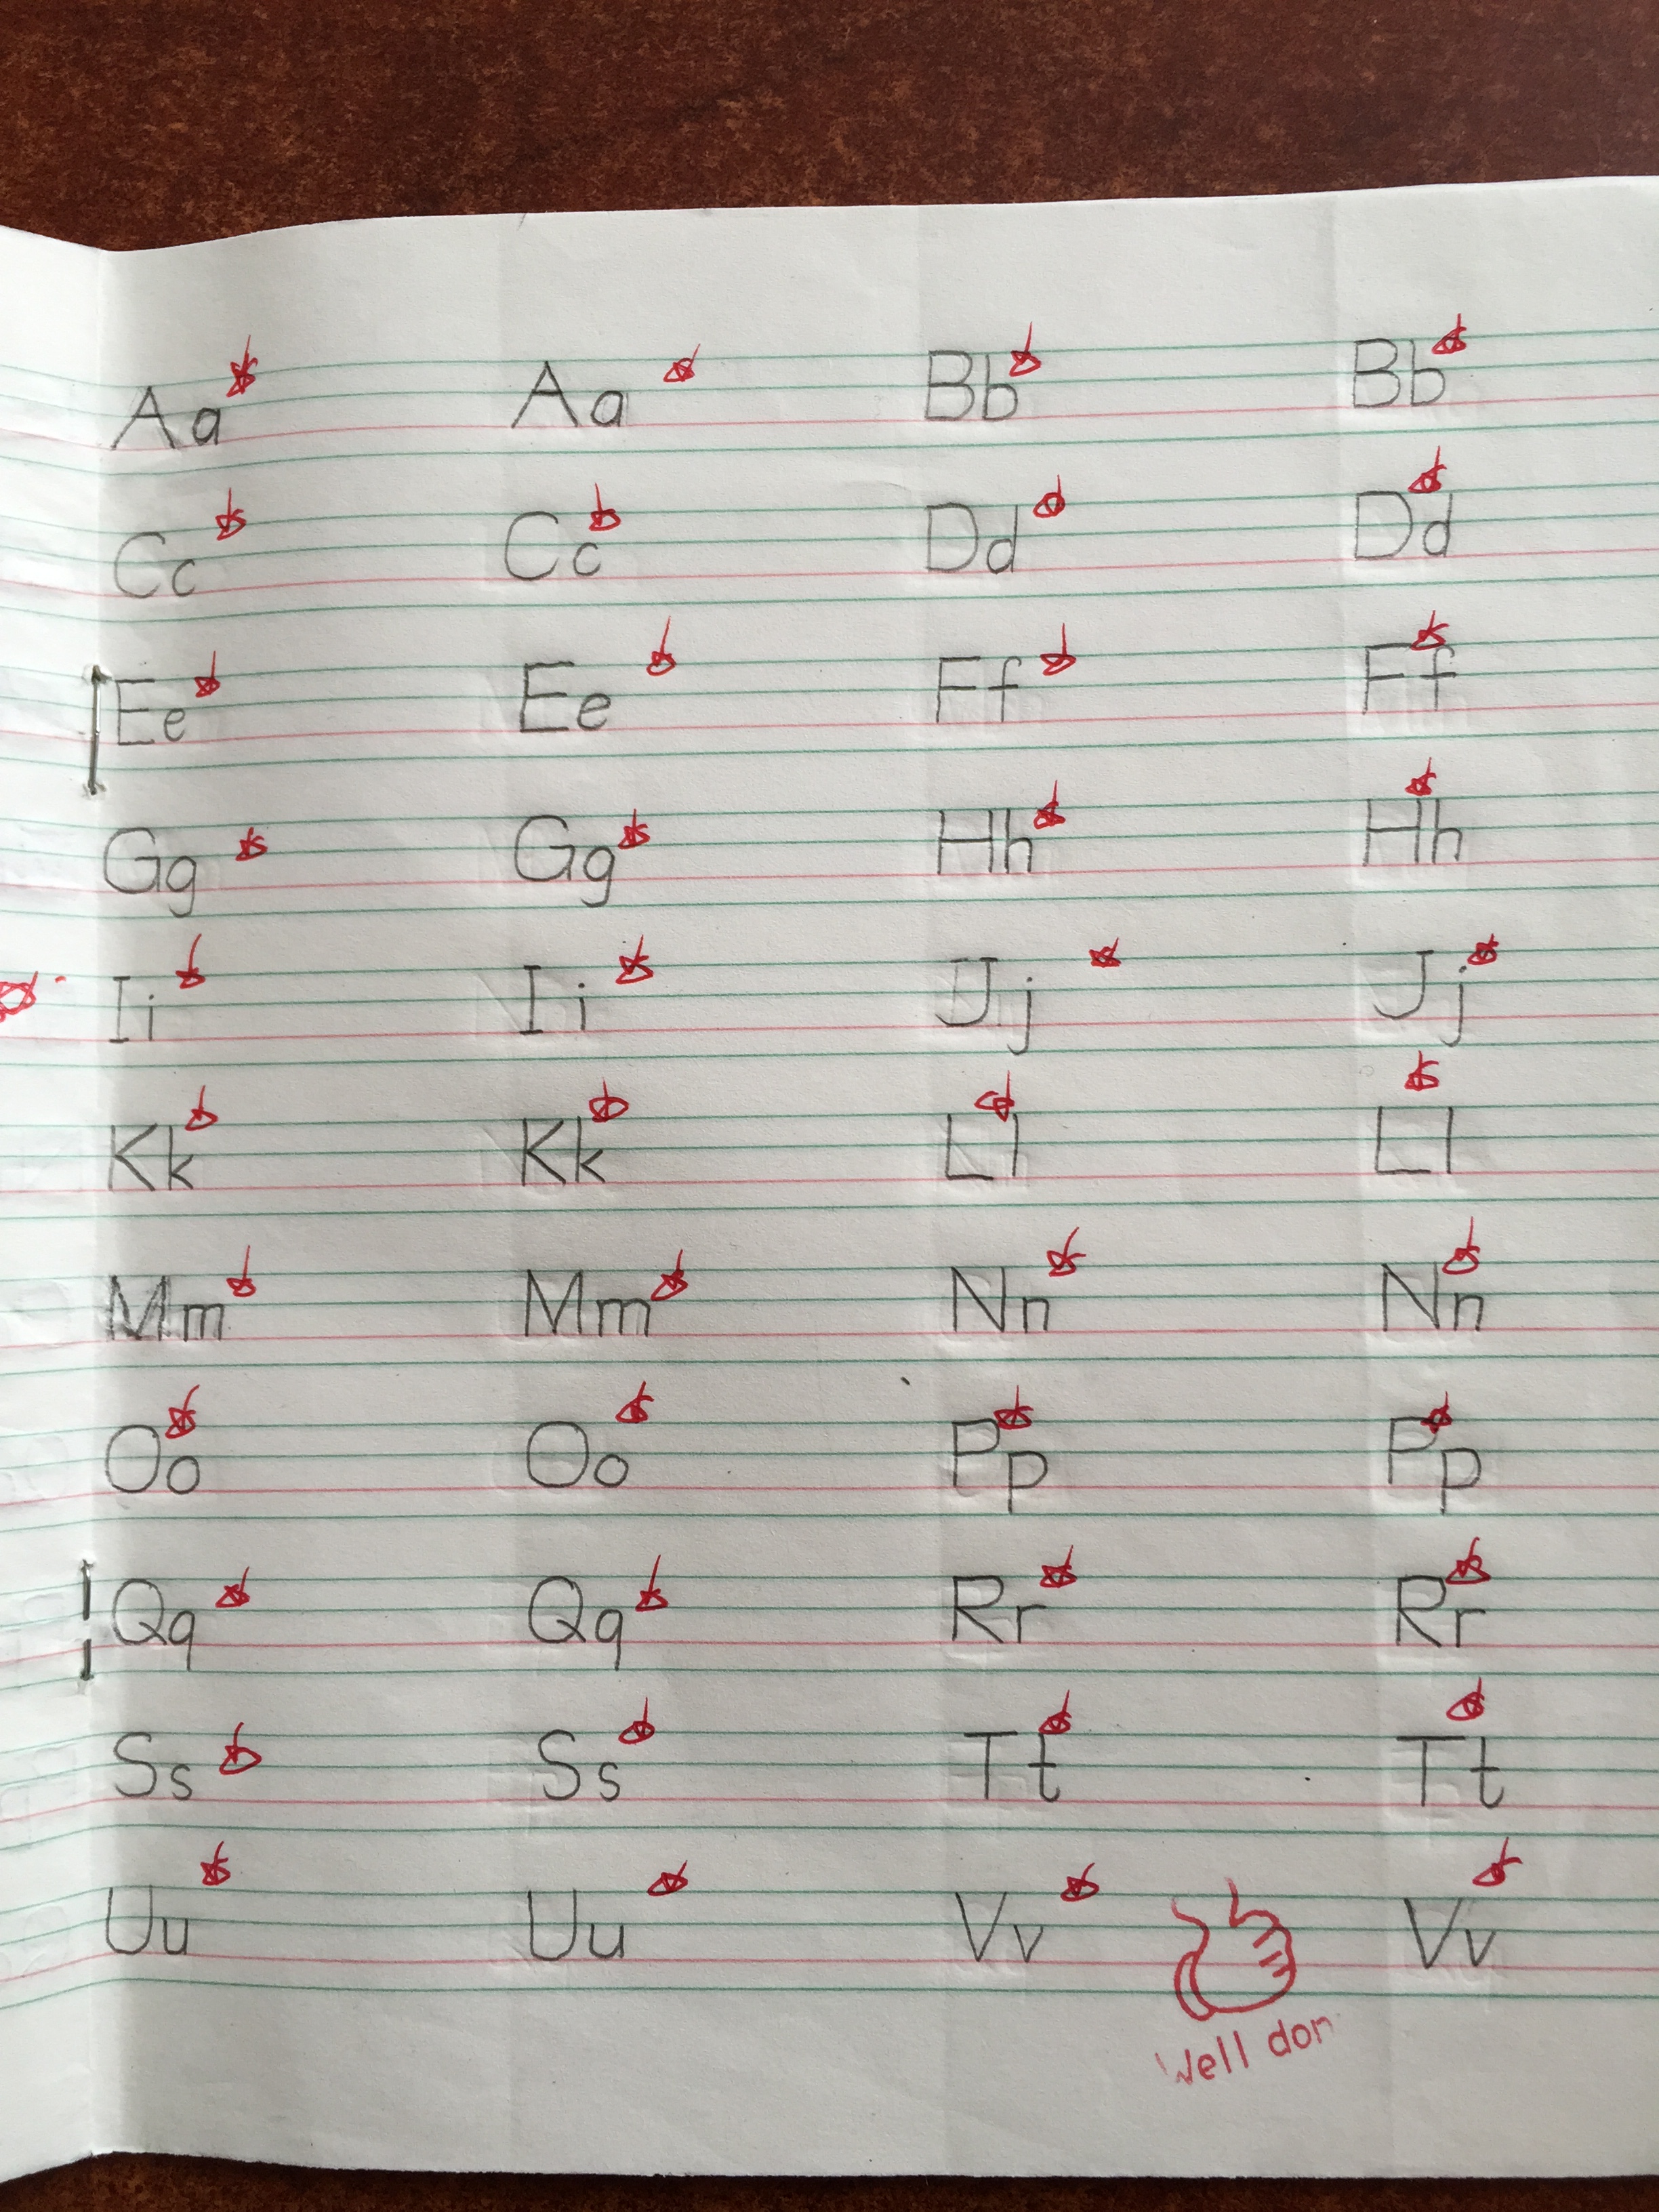 Aa Aa Bb Bb
Cc Cc Dd Dd
Ee Ee Ff Ff
Gg Gg Hh Hh
Ii Ii Jj Jj
Kk Kk Ll Ll
Mm Mm Nn Nn
Oo Oo Pp Pp
Qq Qq Rr Rr
Ss Ss Tt Tt
Uu Uu Vv Vv
Well don